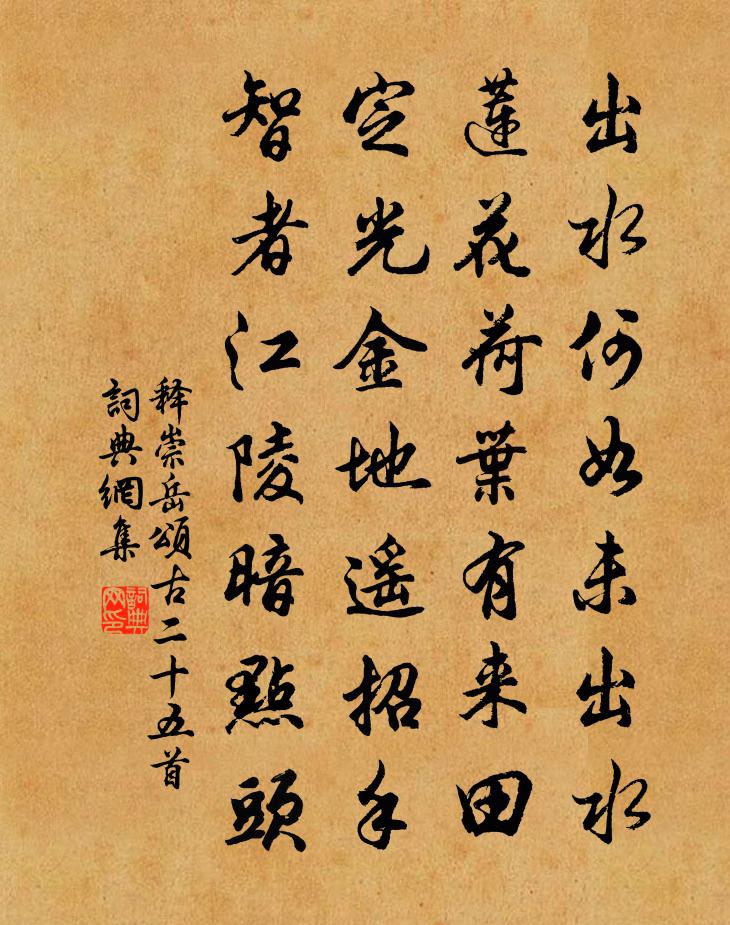 出水何如未出水
蓮花荷葉有来田
定光金地遥招手
智者江陵暗點頭
释崇岳頌古二十五首
詞典網集
詞典网印